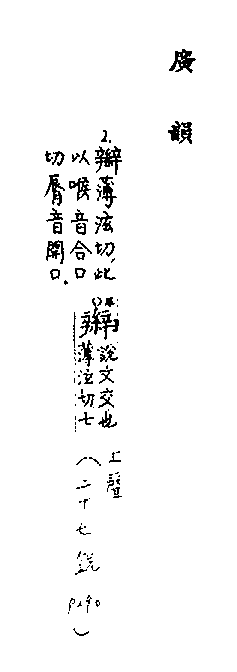 廣韻
2.辮薄泫切,此
以喉音合口
切脣音開口.
辮說文交也
薄泫切七
上聲
(二十七銑 p290)